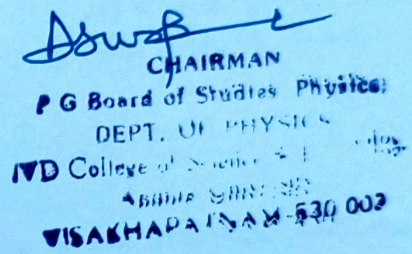 CHAIRMAN
P G Board of Studies Physics
DEPT. OF PHYSICS
College of Science &
VISAKHAPATNAM-530 003